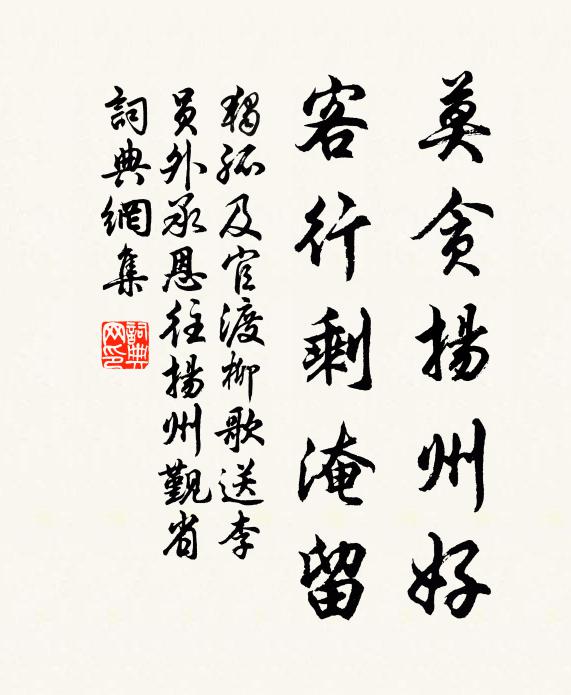 莫貪揚州好
客行剩淹留
獨孤及官渡柳歌送李
員外承恩往揚州覲省
詞典網集
詞典网印